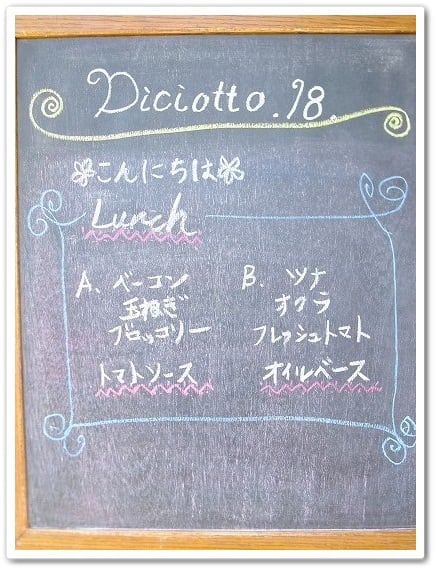 Diciotto.18.
こんにちは
Lunch
A、ベーコン
玉ねぎ
ブロッコリー
トマトソース
B、ツナ
オクラ
フレッシュトマト
オイルベース